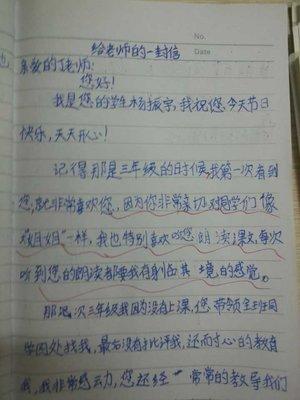 No.
Date
给老师的一封信
亲爱的丁老师:
您好!
我是您的学生杨振宗,我祝您今天节日
快乐,天天开心!
记得那是三年级的时候,我第一次看到
您,就非常喜欢您,因为您非常亲切对同学们像
“大姐姐”一样,我也特别喜欢听您朗读课文,每次
听到您的朗读都要我有身临其境的感觉。
那一次三年级我因为没有上课,您带领全班同
学四处找我,最后没有批评我,还耐心的教育
我,我非常感动,您还经常常的教导我们